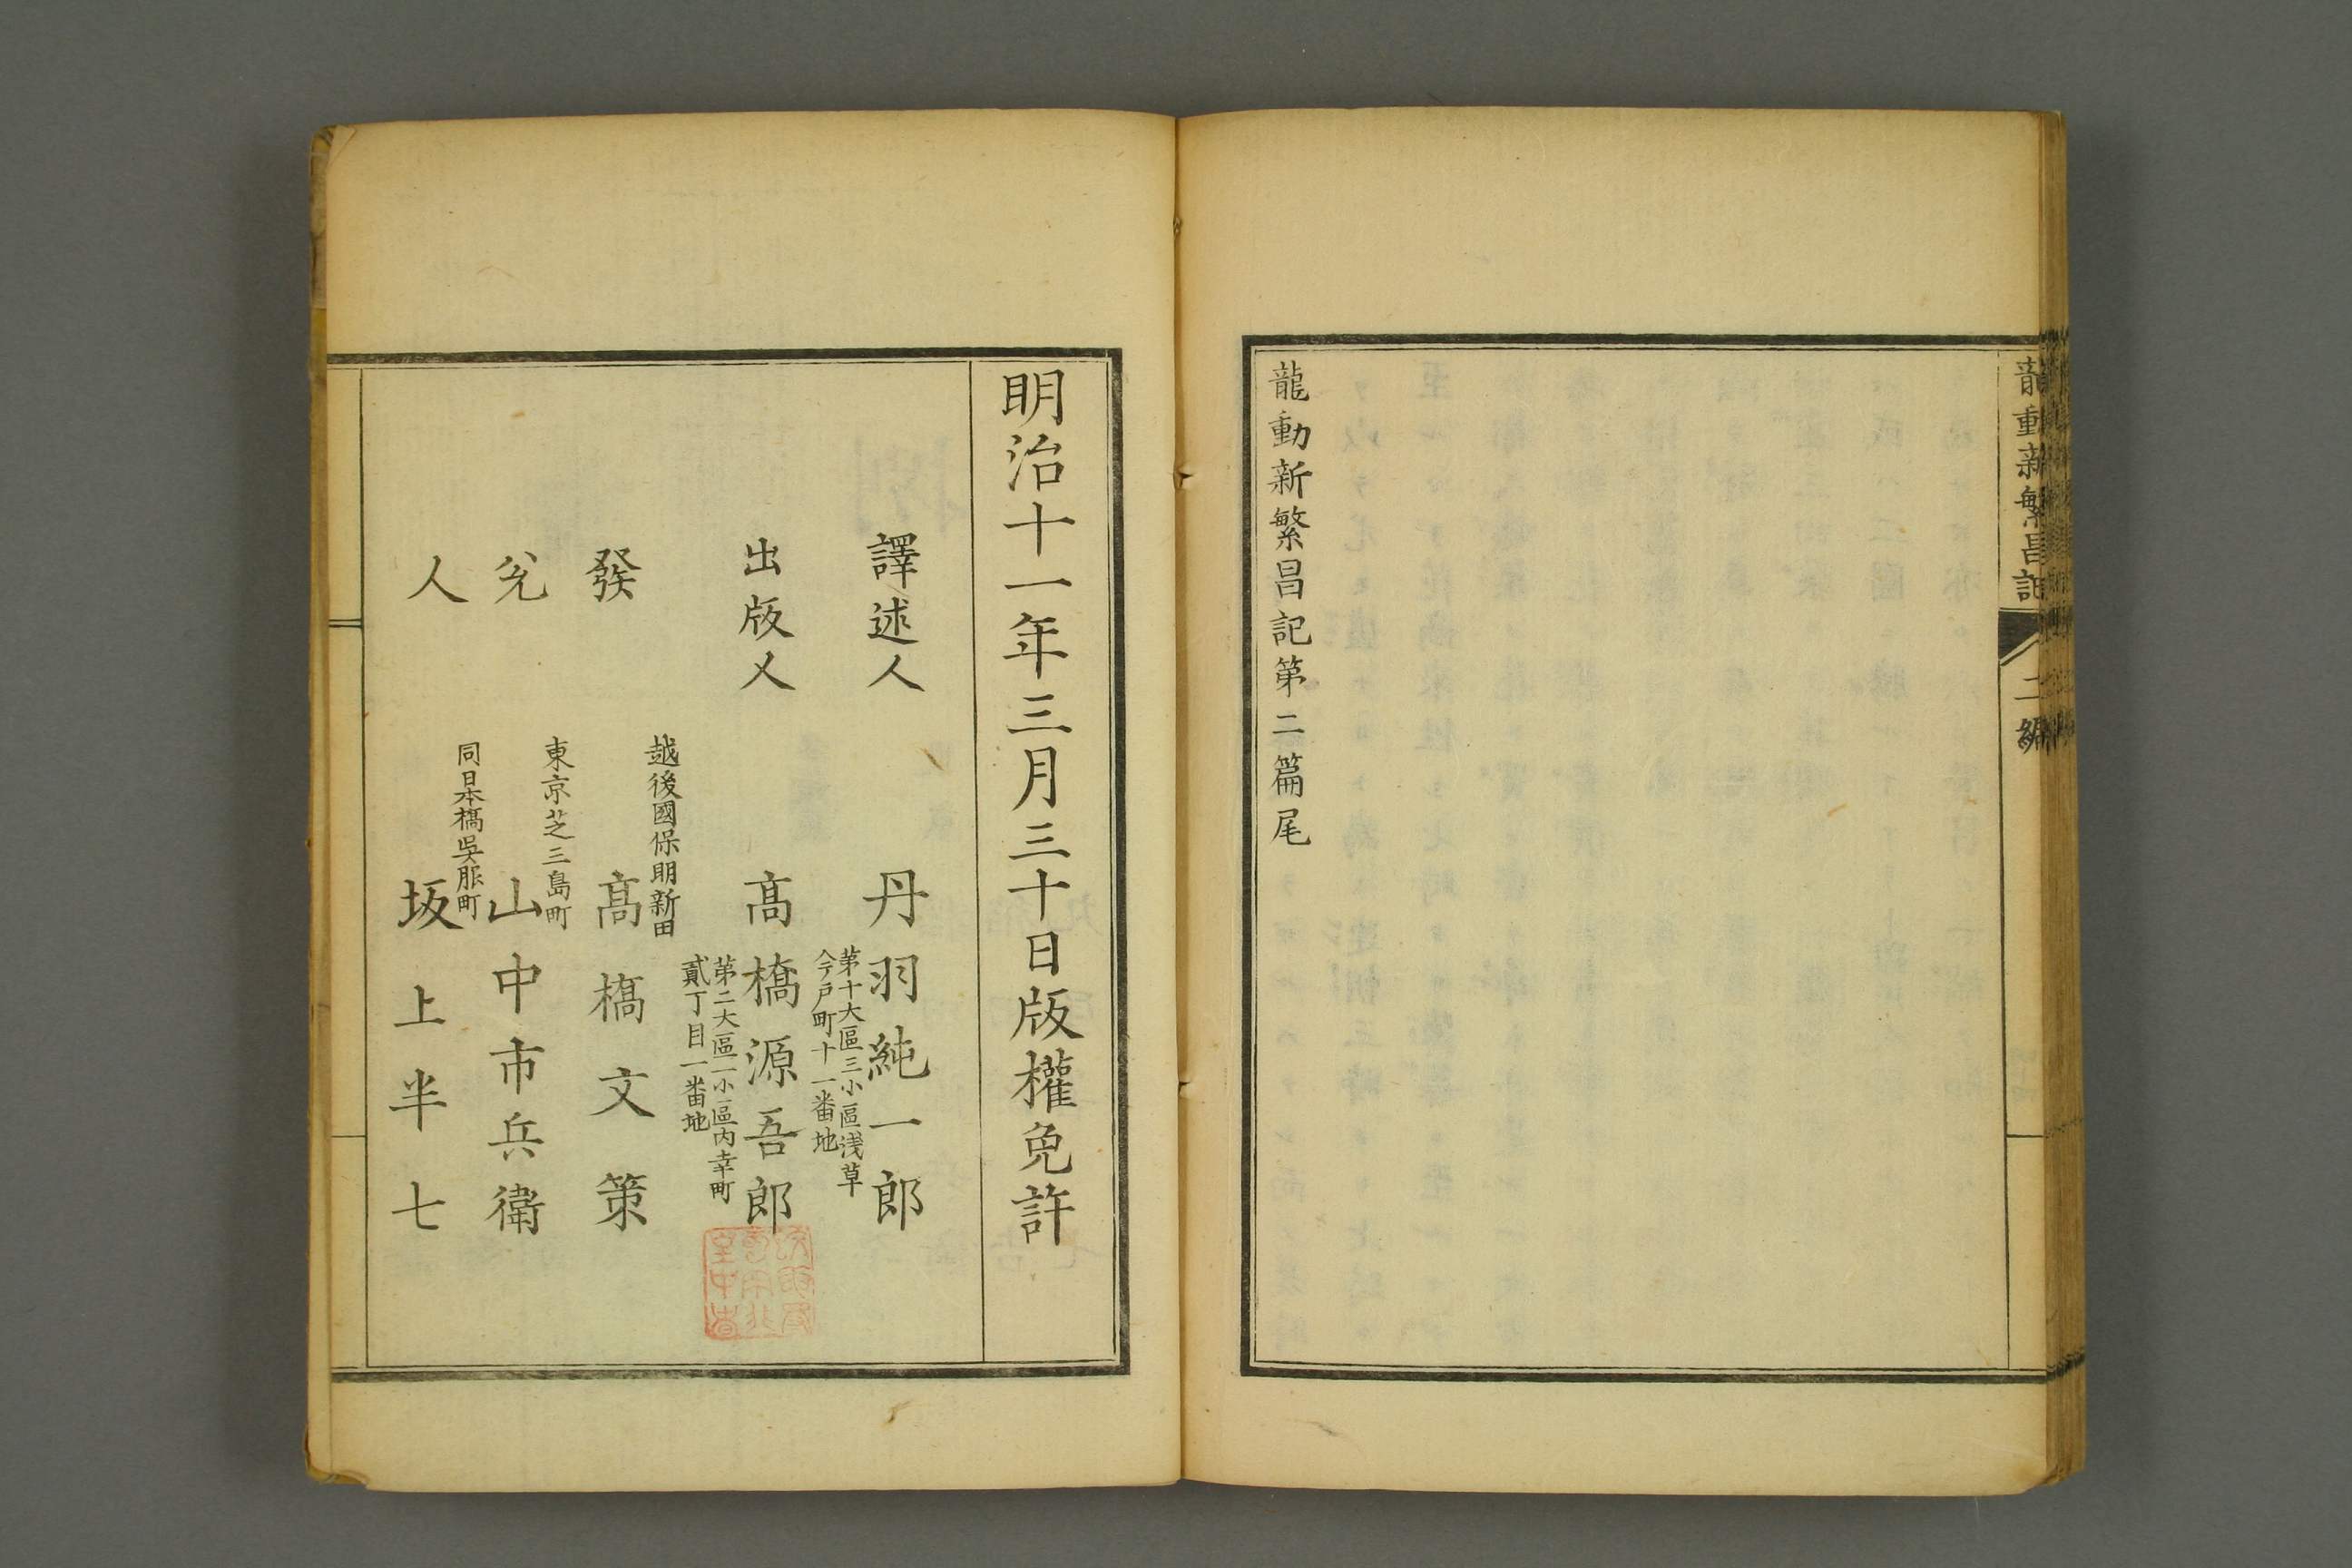 龍動新繁昌記
二編
龍動新繁昌記第二篇尾
明治十一年三月三十日版權免許
譯述人
丹羽純一郎
第十大區三小區浅草
今戸町十一番地
出版人
高橋源吾郎
第二大區一小區内幸町
貳丁目一番地
發
越後國保明新田
髙橋文策
兌
東京芝三島町
山中市兵衛
人
同日本橋吳服町
坂上半七